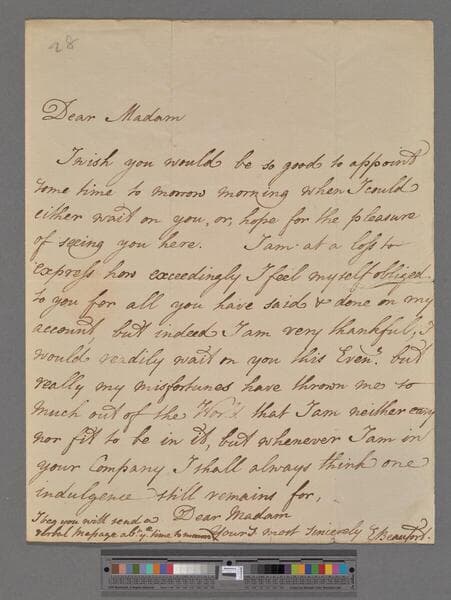 28
Dear Madam
I wish you would be so good to appoint
some time to morrow morning when I could
either wait on you, or, hope for the pleasure
of seeing you here. I am at a loss to
express how exceedingly I feel myself obliged
to you for all you have said & done on my
account, but indeed I am very thankful, I
would readily wait on you this Even.g but
really my misfortunes have thrown me so
much out of the World that I am neither easy
nor fit to be in it, but whenever I am in
your Company I shall always think one
indulgence still remains for,
Dear Madam
I beg you will send a
verbal Message ab.t y.e time to morrow
Yours most sincerely E Beaufort.